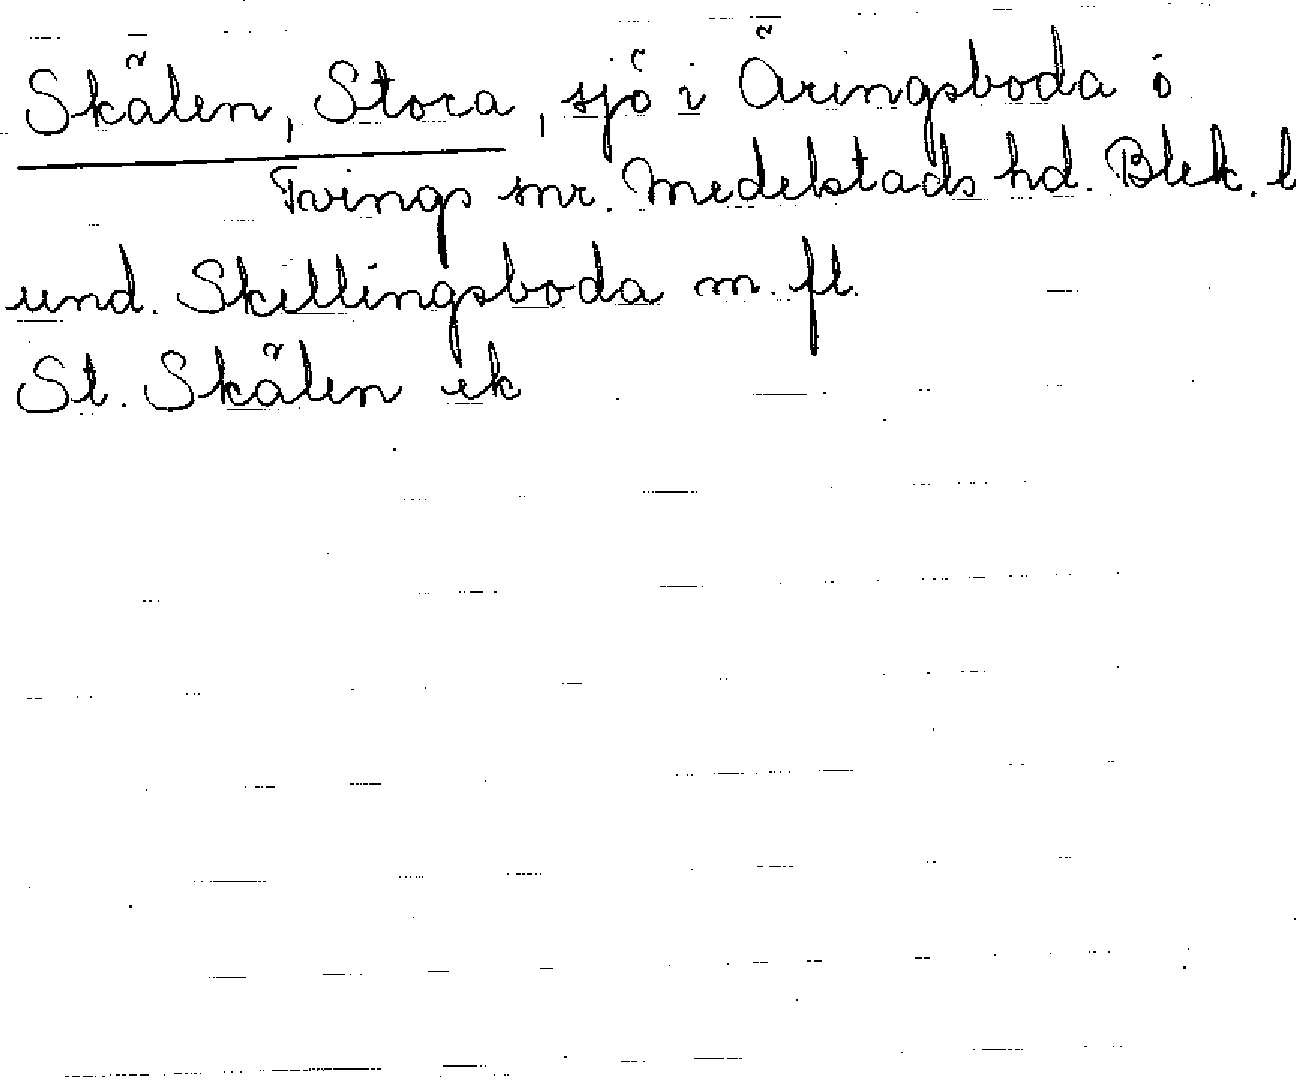 Skälen, Stora, sjö i Äringsboda i
Tvings snr. Medelstads hd. Blek. l
und. Skillingsboda m. fl.
St. Skälen ek